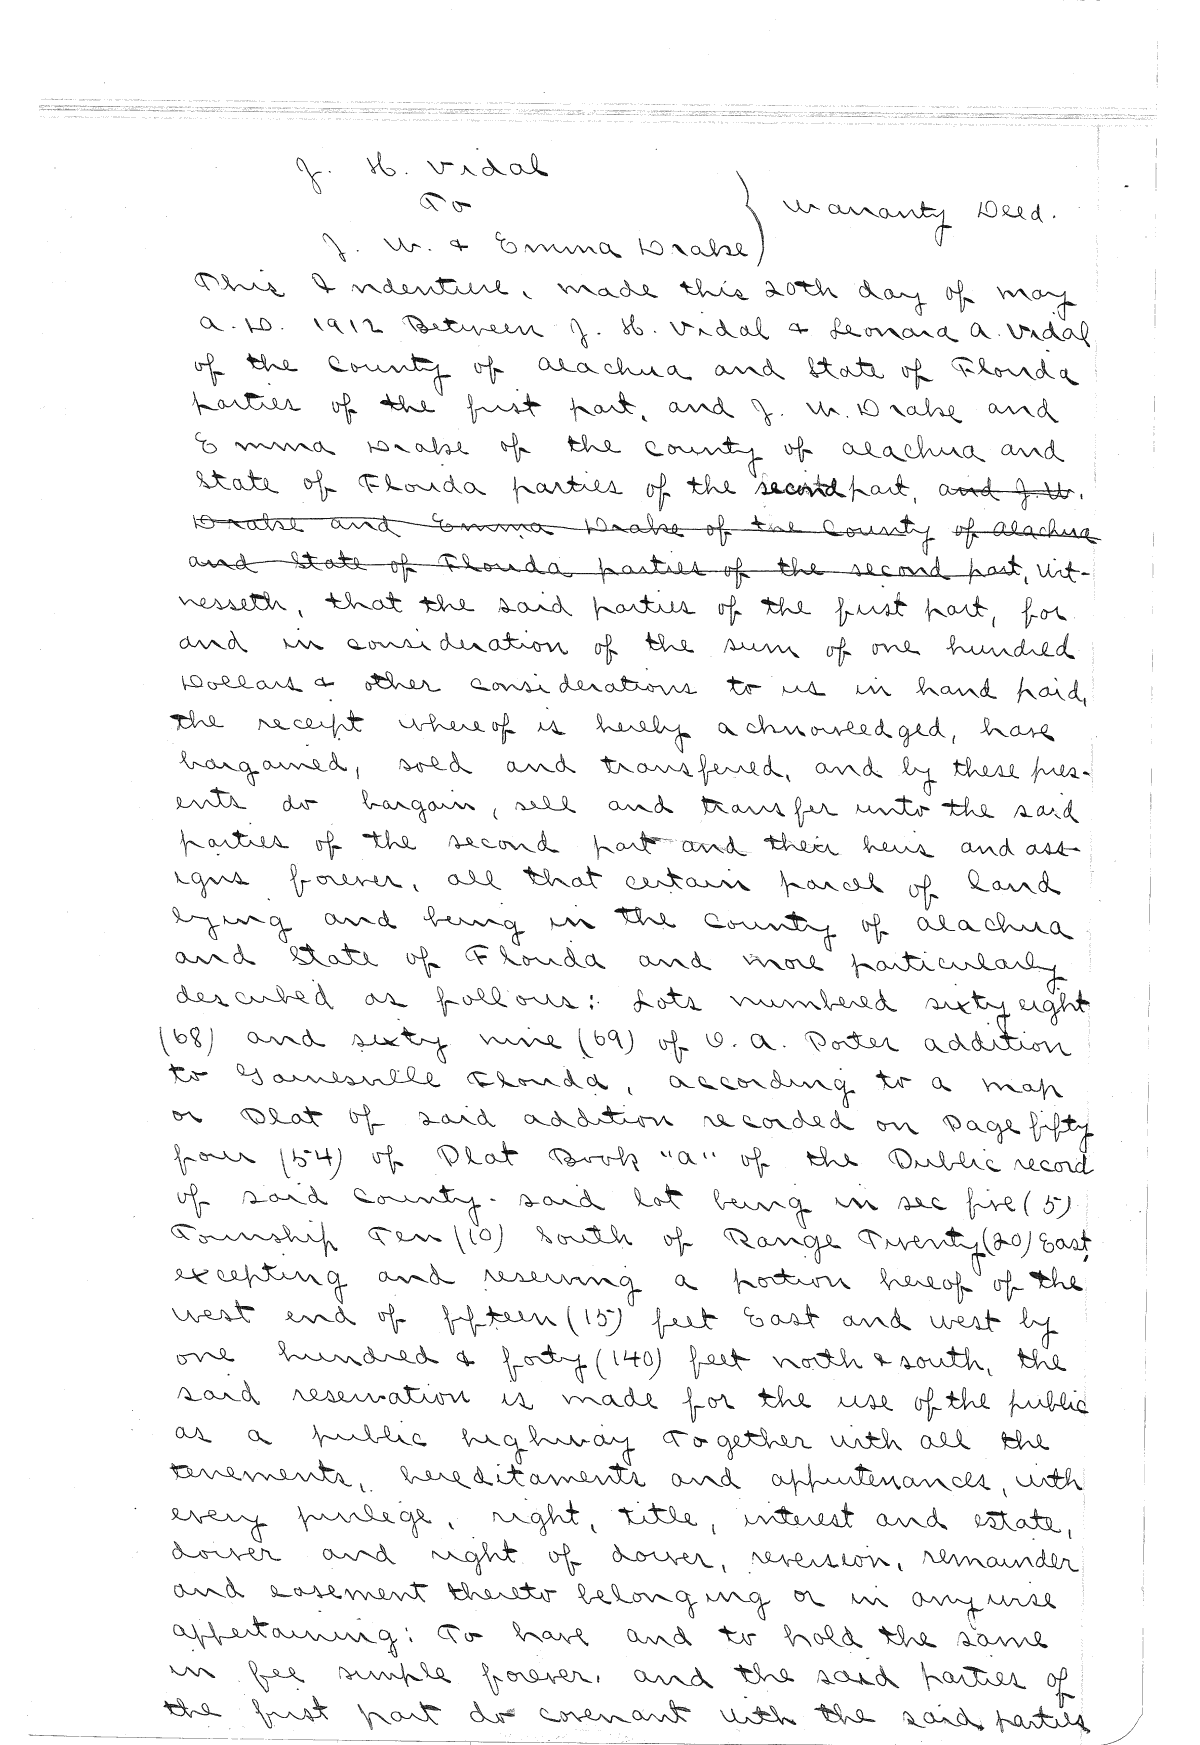 J. H. Vidal
To
J. W. & Emma Drake } Warranty Deed.
This Indenture, made this 20th day of May
A. D. 1912 Between J. H. Vidal & Leonard A. Vidal
of the County of Alachua and State of Florida
parties of the first part, and J. W. Drake and
Emma Drake of the County of Alachua and
State of Florida parties of the second part, and J. W.
Drake and Emma Drake of the County of Alachua
and State of Florida parties of the second part, Wit-
nesseth, that the said parties of the first part, for
and in consideration of the sum of one hundred
Dollars & other considerations to us in hand paid,
the receipt whereof is hereby acknowledged, have
bargained, sold and transferred, and by these pres-
ents do bargain, sell and transfer unto the said
parties of the second part and their heirs and ass-
igns forever, all that certain parcel of land
lying and being in the County of Alachua
and State of Florida and more particularly
described as follows: Lots numbered sixty eight
(68) and sixty nine (69) of O. A. Porter addition
to Gainesville Florida, according to a map
or Plat of said addition recorded on Page fifty
four (54) of Plat Book "A" of the Public record
of said County. said lot being in sec five (5)
Township Ten (10) South of Range Twenty (20) East,
excepting and reserving a portion hereof of the
west end of fifteen (15) feet East and west by
one hundred & forty (140) feet north & south, the
said reservation is made for the use of the public
as a public highway Together with all the
tenements, hereditaments and appurtenances, with
every privilege, right, title, interest and estate,
dower and right of dower, reversion, remainder
and easement thereto belonging or in anywise
appertaining: To have and to hold the same
in fee simple forever. and the said parties of
the first part do covenant with the said parties